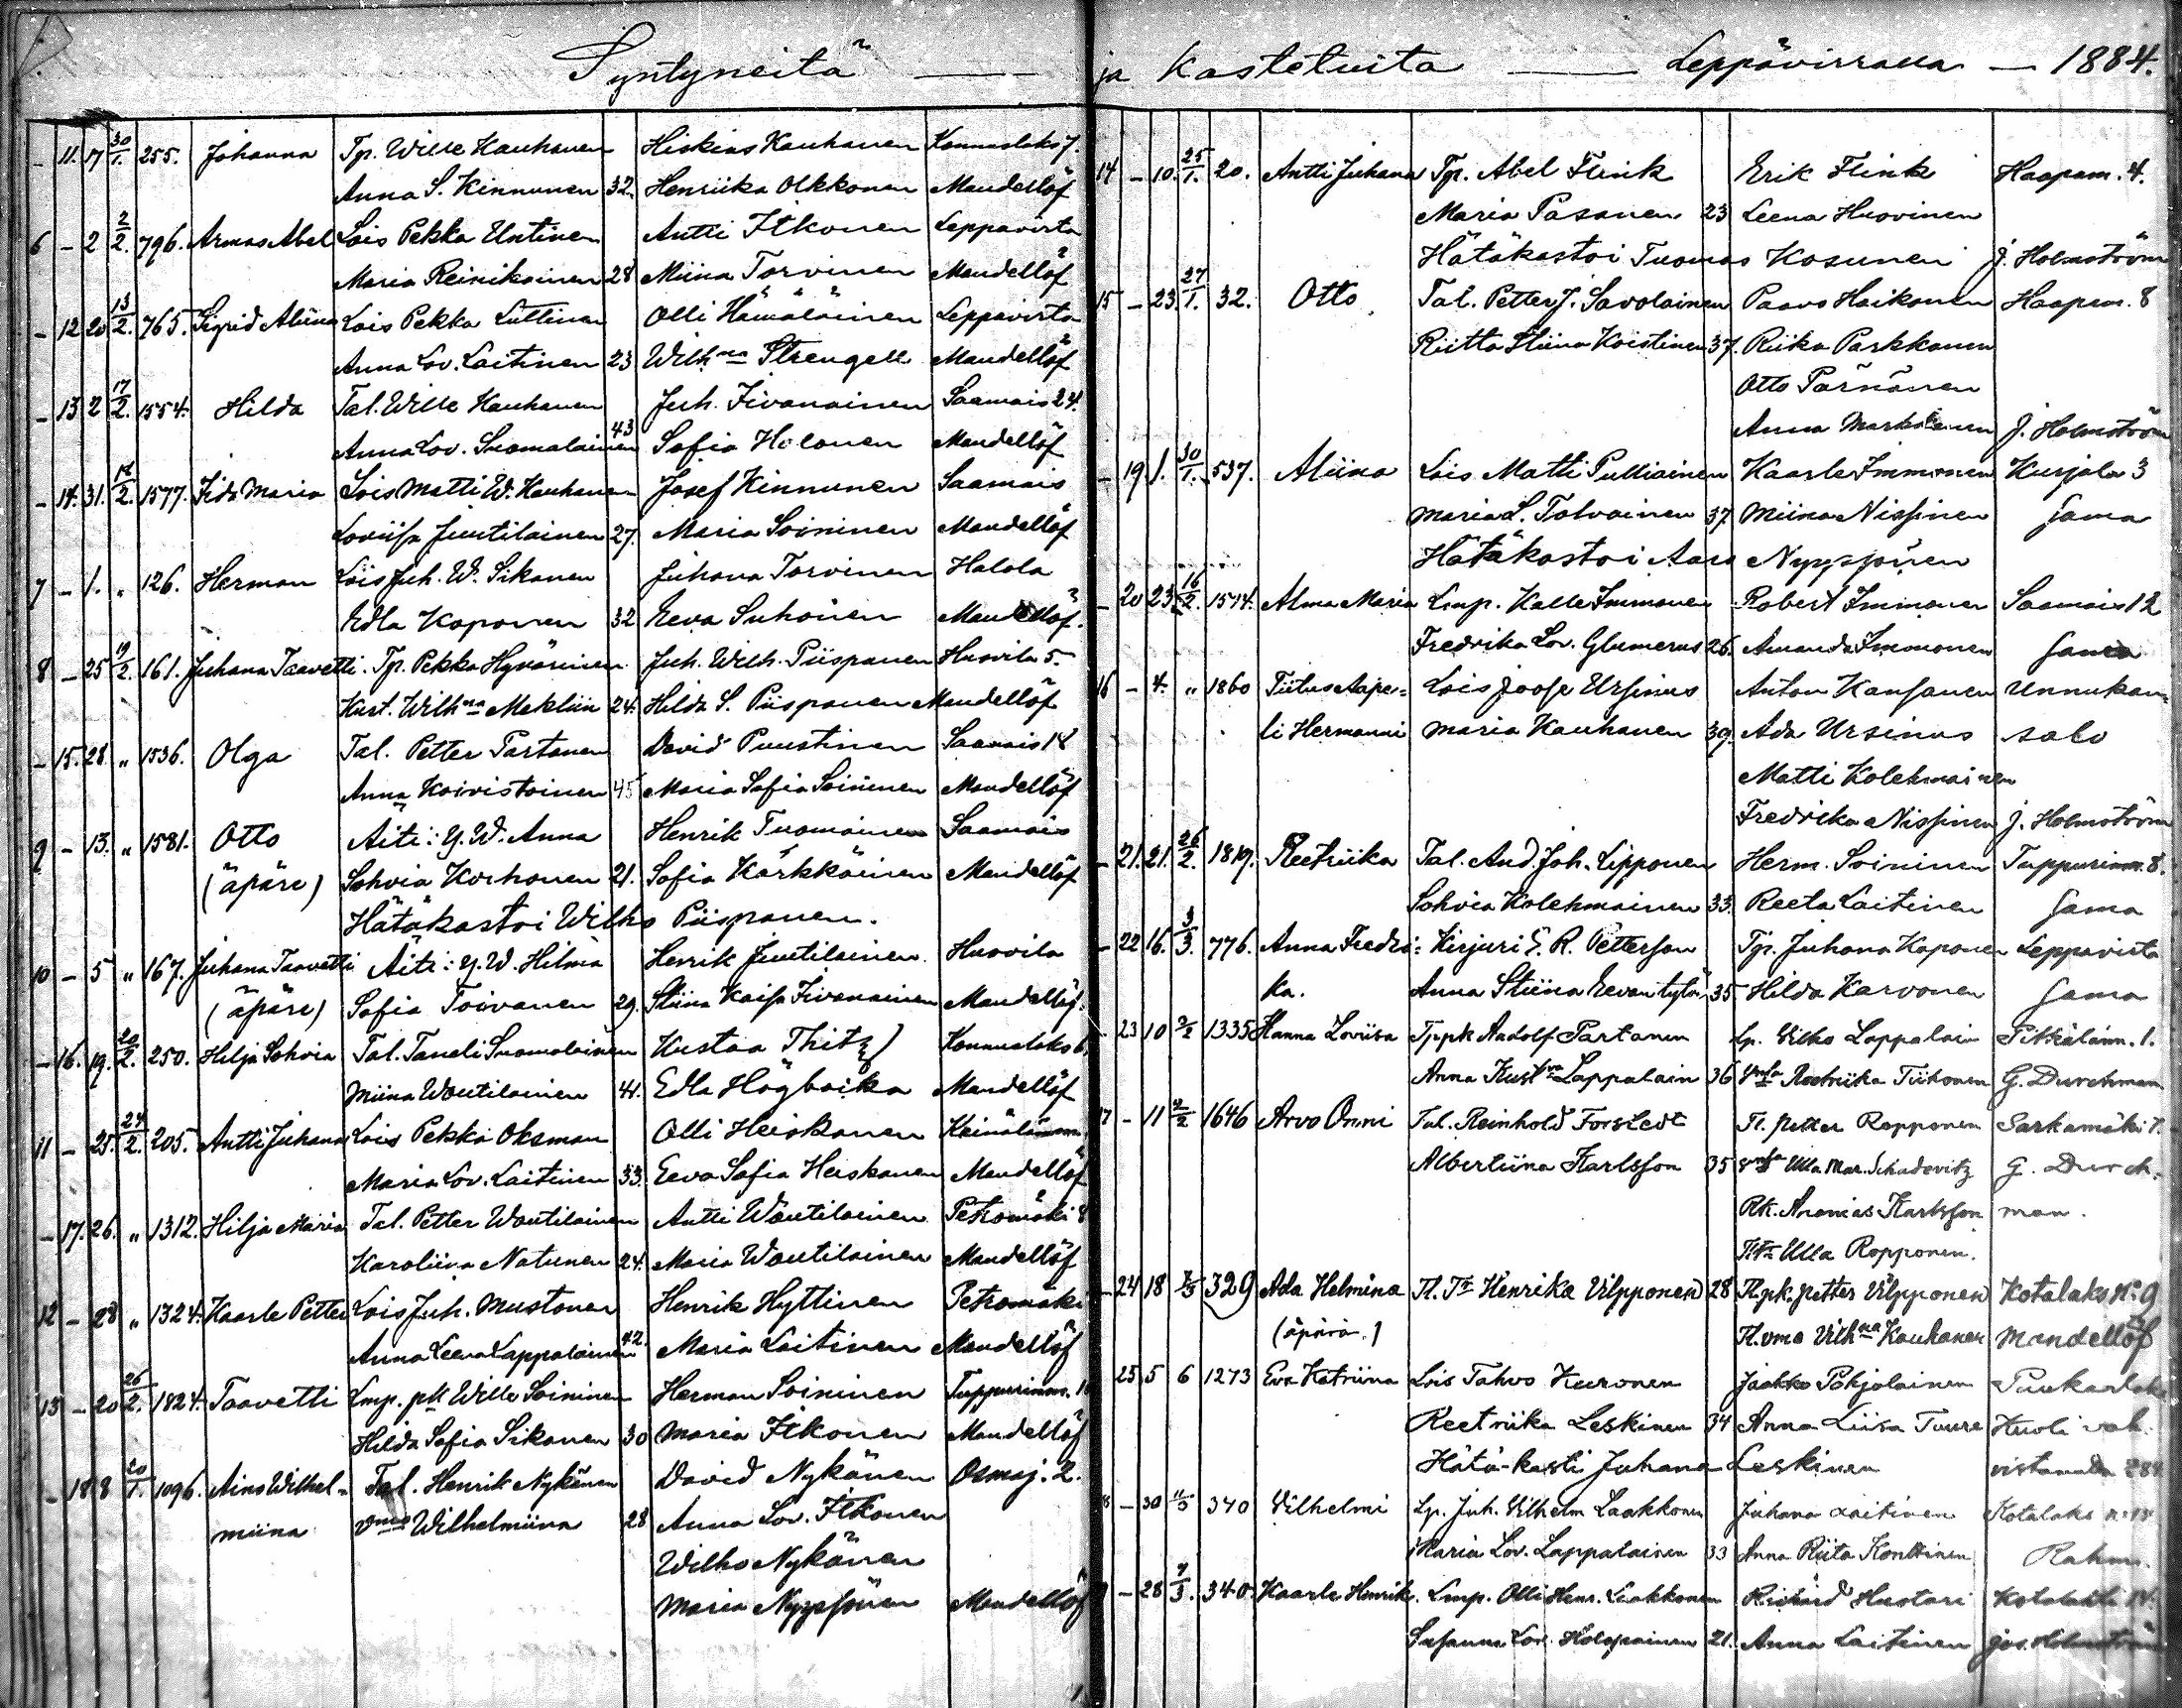 Syntyneitä — ja Kastetuita — Leppävirralla — 1884.
- 11. 17 30/1. 255. Johanna Tp. Wille Kauhanen Hiskias Kauhanen Konnuslaks 7.
Anna S. Kinnunen 32. Henriika Olkkonen Mandellöf
6 - 2 2/2. 796. Armas Abel Lois Pekka Untinen Antti Itkonen Leppävirta
Maria Reinikainen 28 Miina Torvinen Mandellöf
- 12 20 13/2. 765. Sigrid Aliina Lois Pekka Luttinen Olli Hämäläinen Leppävirta
Anna Lov. Laitinen 23 Wilhna Strengell Mandellöf
- 13 2 17/2. 1554. Hilda Tal. Wille Kauhanen Juh. Iivanainen Saamais 24.
Anna Lov. Suomalainen 43 Sofia Holonen Mandellöf
- 14. 31. 17/2. 1577. Iida Maria Lois Matti W. Kauhanen Josef Kinnunen Saamais
Loviisa Juutilainen 27. Maria Soininen Mandellöf
7 - 1. " 126. Herman Lois Juh. W. Sikanen Juhana Torvinen Halola
Edla Koponen 32 Eeva Suhonen Mandellöf.
8 - 25 19/2. 161. Juhana Taavetti. Tp. Pekka Hyvärinen Juh. Wilh. Piispanen Huovila 5.
Kust. Wilhna Mekliin 24. Hilda S. Piispanen Mandellöf
- 15. 28. " 1536. Olga Tal. Petter Partanen David Puustinen Saamais 18
Anna Koivistoinen 45 Maria Sofia Soininen Mandellöf
9 - 13. " 1581. Otto Äiti: y. W. Anna Henrik Tuomainen Saamais
(äpäre) Sohvia Korhonen 21. Sofia Kärkkäinen Mandellöf
Hätäkastoi Wilho Piispanen.
10 - 5 " 167. Juhana Taavetti Äiti: y. W. Hilma Henrik Juutilainen. Huovila
(äpäre) Sofia Toivanen 29. Stiina Kaisa Iivanainen Mandellöf.
- 16. 19. 20/2. 250. Hilja Sohvia Tal. Taneli Suomalainen Kustaa Thitz Konnuslaks 6.
Miina Woutilainen 41. Edla Högboika Mandellöf
11 - 25. 24/2. 205. Antti Juhana Lois Pekka Oksman Olli Heiskanen Keinälänm.
Maria Lov. Laitinen 33. Eeva Sofia Heiskanen Mandellöf
- 17. 26. " 1312. Hilja Maria Tal. Petter Woutilainen Antti Woutilainen Petromäki 8
Karoliina Natunen 24. Maria Woutilainen Mandellöf
12 - 28 " 1324. Kaarle Petter Lois Juh. Mustonen Henrik Hyttinen Petromäki
Anna Leena Lappalainen 42. Maria Laitinen Mandellöf
13 - 20 26/2. 1824. Taavetti Lmp. pk Wille Soininen Herman Soininen Tuppurinm.
Hilda Sofia Sikanen 30 Maria Itkonen Mandellöf
- 18 8 20/1. 1096. Aino Wilhel- Tal. Henrik Nykänen David Nykänen Osmaj. 2.
miina vmo Wilhelmiina 28 Anna Lov. Itkonen
Wilho Nykänen
Maria Nyyssönen Mandellöf
14 - 10. 25/1. 20. Antti Juhana Tp. Abel Flink Erik Flink Haapam. 4.
Maria Pasanen 23 Leena Huovinen
Hätäkastoi Tuomas Kosunen J. Holmström
15 - 23. 27/1. 32. Otto. Tal. Petter J. Savolainen Paavo Haikonen Haapam. 8
Riitta Stiina Koistinen 37. Riika Parkkonen
Otto Pärnänen
Anna J. Holmström
- 19 1. 30/1. 537. Aliina Lois Matti Pulliainen Kaarle Immonen Kurjala 3
Maria L. Tolvainen 37. Miina Nissinen sama
Hätäkastoi Aaro Nyyssönen
- 20 23. 16/2. 1574. Alma Maria Lmp. Kalle Immonen Robert Immonen Saamais 12
Fredrika Lov. Glumerus 26. Amanda Immonen sama
16 - 4. " 1860 Tiitus Aape- Lois Joose Ursinus Anton Kansanen Unnukan-
li Hermanni Maria Kauhanen 39. Ada Ursinus salo
Matti Kolehmainen
Fredrika Nissinen J. Holmström
- 21. 21. 26/2. 1819. Reetriika Tal. And. Joh. Lipponen Herm. Soininen Tuppurinm. 8.
Sohvia Kolehmainen 33. Reeta Laitinen sama
- 22 16. 3/3. 776. Anna Fredri- Kirjuri E. R. Petterson Tp. Juhana Koponen Leppävirta
ka. Anna Stiina Eevan tytär 35 Hilda Karvonen sama
- 23 10 1335 Hanna Loviisa Tppk Aadolf Partanen Lp. Vilho Lappalain Pitkälänn. 1.
Anna Kustva Lappalain 36 Reetriika Tiihonen G. Durchman
17 - 11 1646 Arvo Onni Tal. Reinhold Forstedt Tl. Petter Ropponen Sarkamäki 7.
Albertiina Karlsson 35 Ulla Mar. Schadovitz G. Durch-
Rk. Ananias Karlsson man.
Ulla Ropponen.
- 24 18 329 Ada Helmina Tl. Tr Henrika Vilpponen 28 Tl. pk. Petter Vilpponen Kotalaks No 9
(äpärä.) Tl. vmo Vilhna Kauhanen Mandellöf
25 5 6 1273 Eva Katriina Lois Tahvo Kuronen Jaakko Pohjolainen Puukarlaks
Reetriika Leskinen 34 Anna Liisa Tuure Kuoli vah.
Hätä-kasti Juhana Leskinen
- 30 340 Vilhelmi Lp. Juh. Vilhelm Laakkonen Juhana Laitinen Kotalaks
Maria Lov. Lappalainen 33 Anna Riita Konttinen Rahm.
- 28 7/3. 340. Kaarle Henrik. Lmp. Olli Henr. Laakkonen Richard Hustari Kotalahti
Susanna Lov. Holopainen 21. Anna Laitinen Jos. Holmström